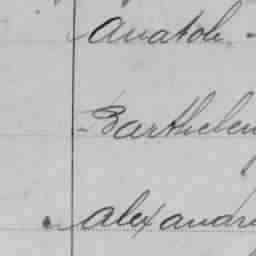 Anatole
Barthelemy
Alexandre